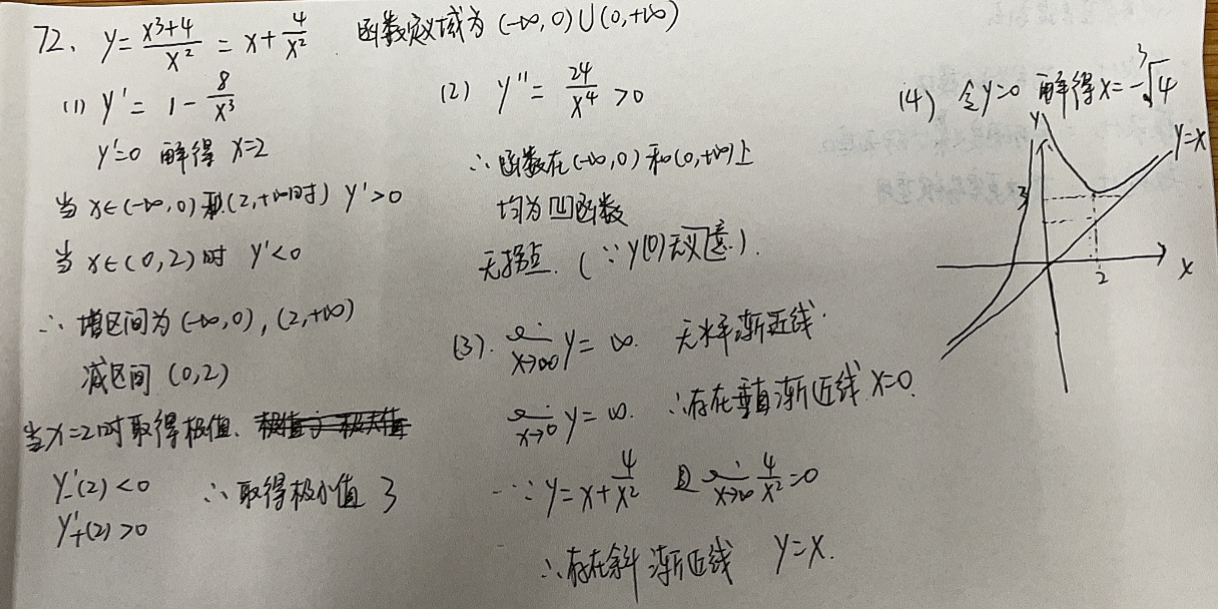 72、 y = (x³+4)/x² = x + 4/x² 函数定义域为 (-∞,0)∪(0,+∞)
(1) y' = 1 - 8/x³
y'=0 解得 x=2
当 x∈(-∞,0) 和(2,+∞)时 y'>0
当 x∈(0,2)时 y'<0
∴ 增区间为 (-∞,0), (2,+∞)
减区间 (0,2)
当x=2时取得极值、
y'₋(2)<0 ∴ 取得极小值 3
y'₊(2)>0
(2) y'' = 24/x⁴ >0
∴函数在(-∞,0) 和(0,+∞)上
均为凹函数
无拐点. (∵ y(0)无意义).
(3). lim x→∞ y = ∞. 无水平渐近线.
lim x→0 y = ∞. ∴存在垂直渐近线 x=0.
∵ y = x + 4/x² 且 lim x→∞ 4/x² = 0
∴存在斜渐近线 y=x.
(4) 令y=0 解得 x = -³√4
y
y=x
3
2
x